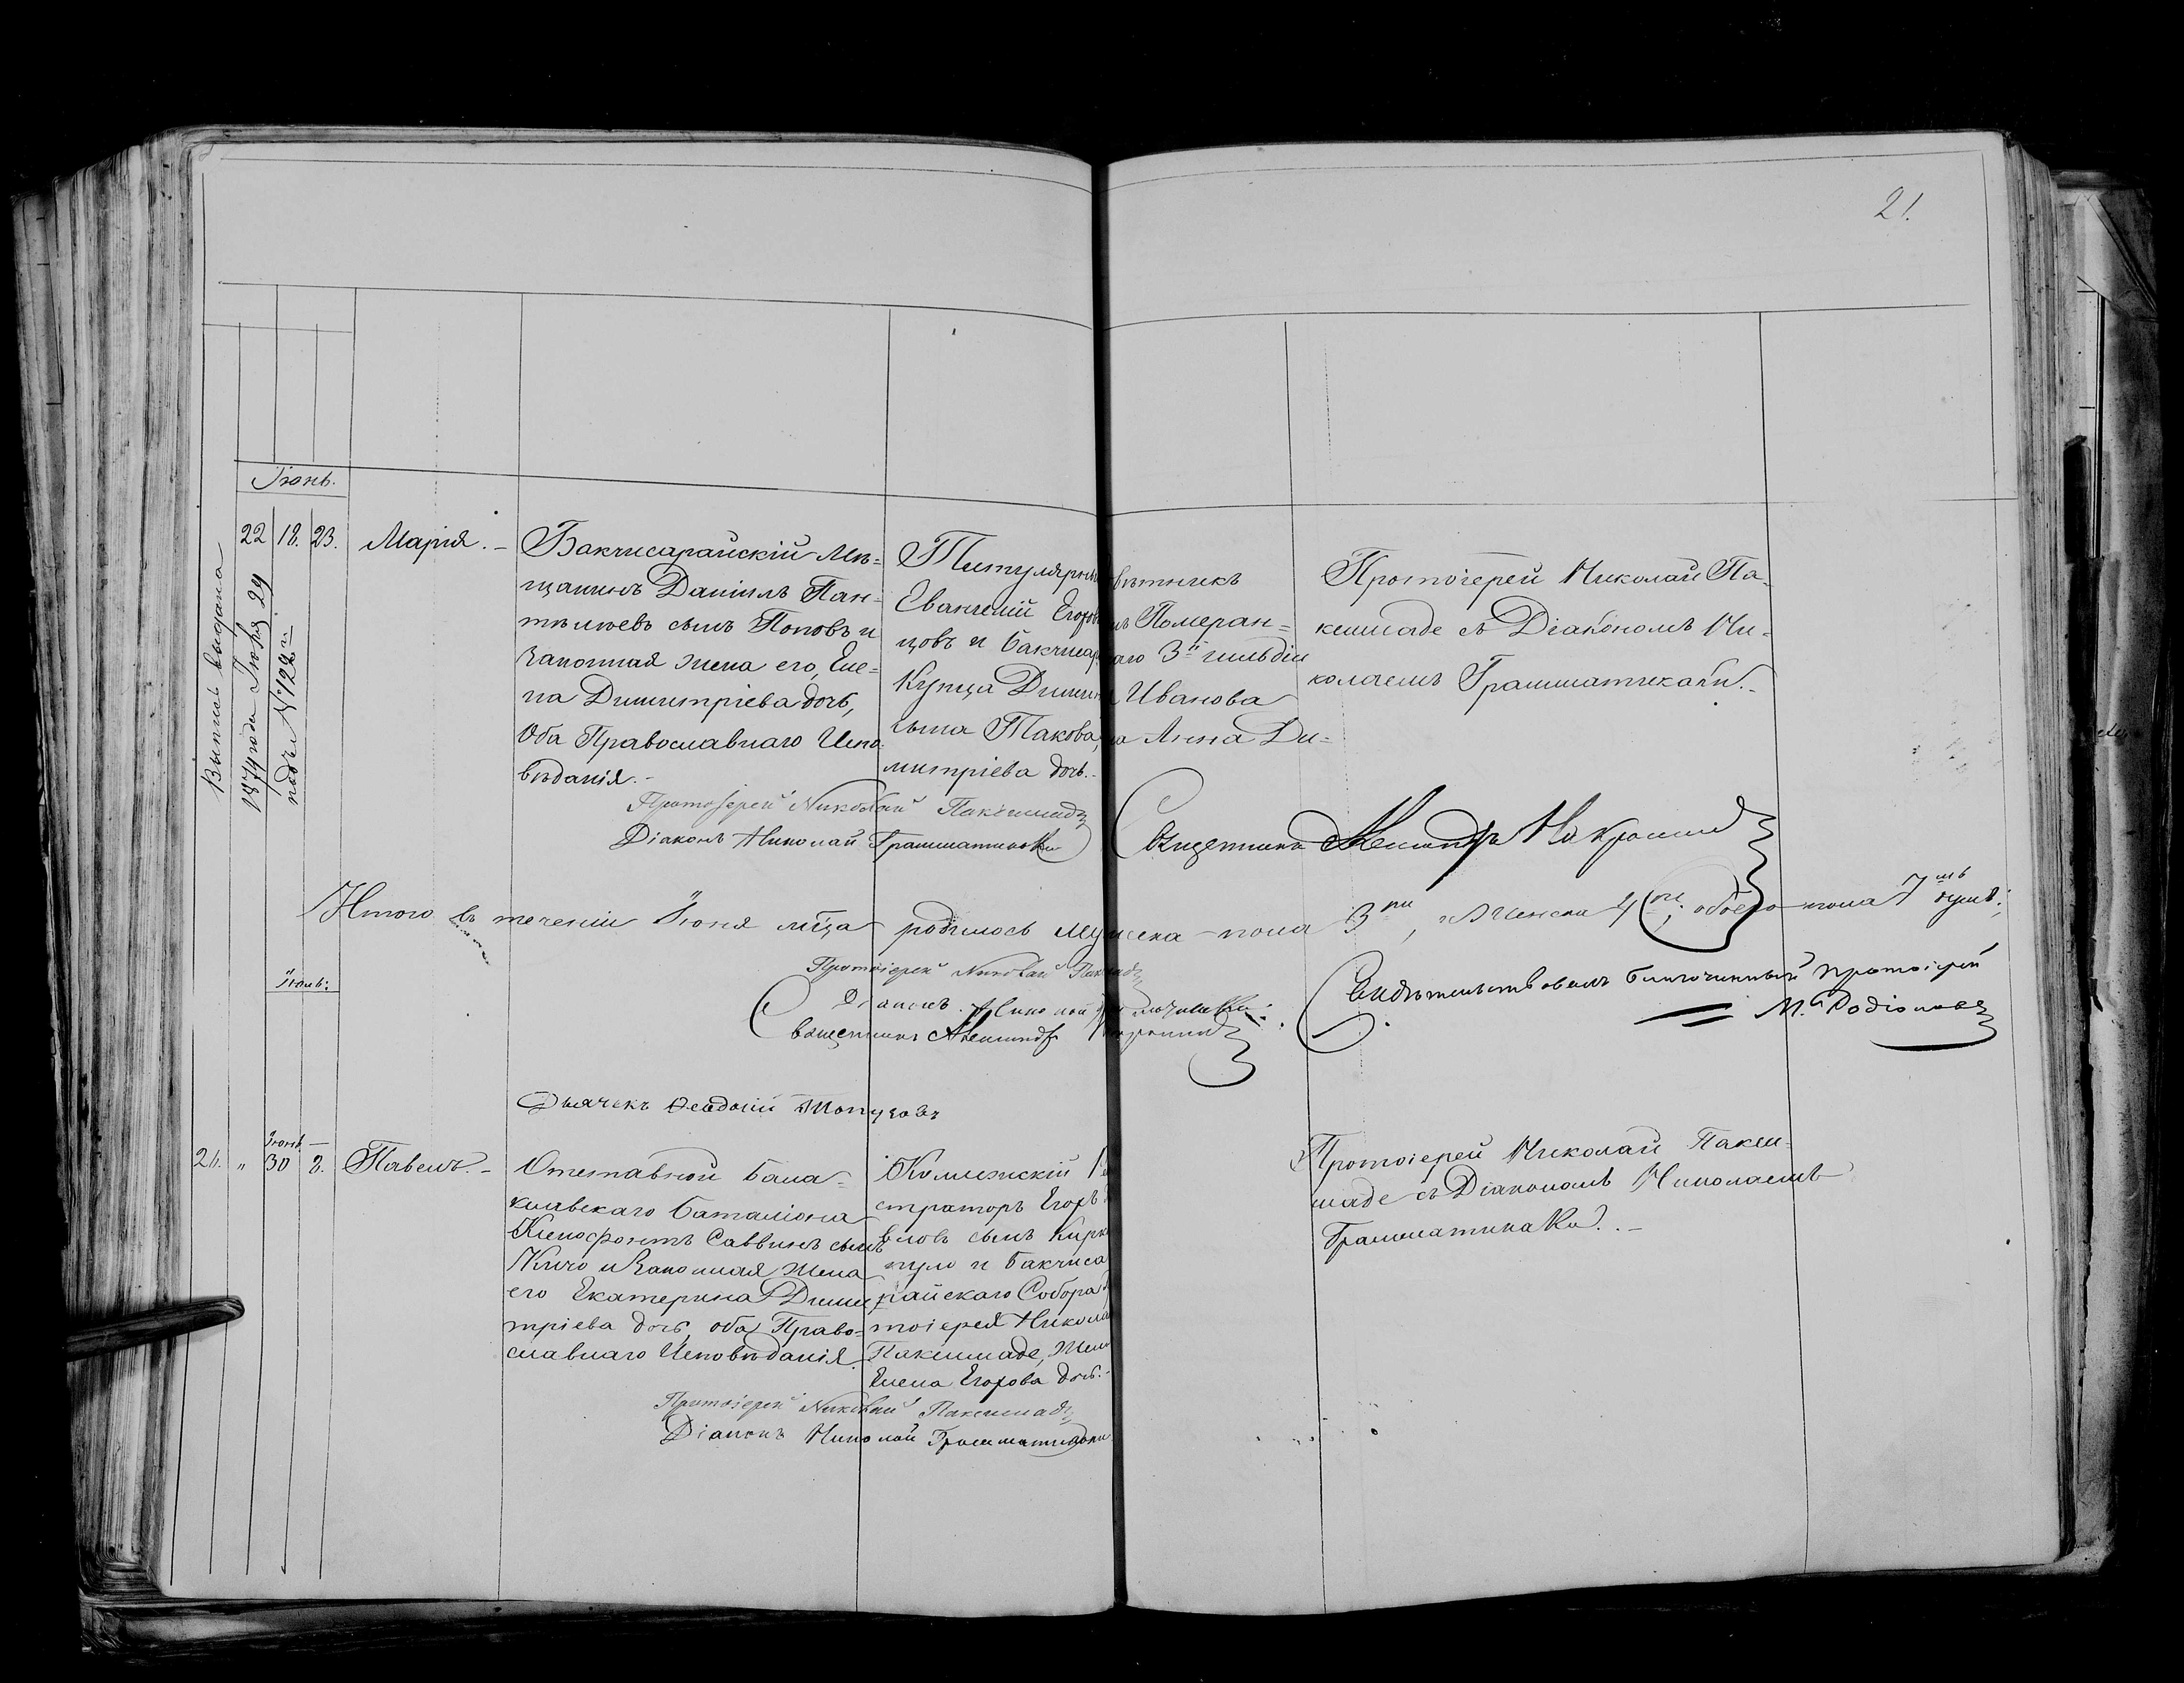 21.
Іюнь.
Выпись выдана
1874 года Іюня 29
подъ № 122.
22 18. 23. Марія. –
Бакчисарайскій Мѣ=
щанинъ Даніилъ Пан=
тѣлѣевъ сынъ Поповъ и
Законная жена его, Еле=
на Димитріева дочь,
Оба Православнаго Испо
вѣданія. –
Титулярный вѣтникъ
Евангелій Егоров Померан=
цовъ и Бакчисар аго 3й гильдіи
Купца Димит Иванова
сына Такова, Анна Ди=
митріева дочь. –
Протоіерей Николай Па-
ксимаде съ Діакономъ Ни-
колаемъ Грамматикаки. –
Протоіерей Николай Паксимаде
Діаконъ Николай Грамматикаки
Священникъ Александръ
Итого въ теченіи Іюня мѣца родилось Мужеска пола 3ри, Женска 4ри, обоего пола 7мь душъ;
Протоіерей Николай
Діаконъ Николай
Священникъ Александръ
Свидѣтельствовалъ благочинный протоіерей
М. Родіоновъ
Іюль:
Дьячекъ Ѳеодосій
21. " Іюнь 30 – 2. Павелъ. –
Отставной Бала=
клавскаго баталіона
Ксенофонтъ Саввинъ сынъ
Кичо и Законная жена
его Екатерина Дими
тріева дочь, оба Право=
славнаго Исповѣданія.
Коллежскій
страторъ Егоръ
вловъ сынъ Кирк
пуло и Бакчиса
райскаго Собора
тоіерея Никола
Паксимаде, Жен
Елена Егорова дочь. –
Протоіерей Николай Пакси-
маде съ Діакономъ Николаемъ
Грамматикаки. –
Протоіерей Николай Паксимаде
Діаконъ Николай Грамматикаки